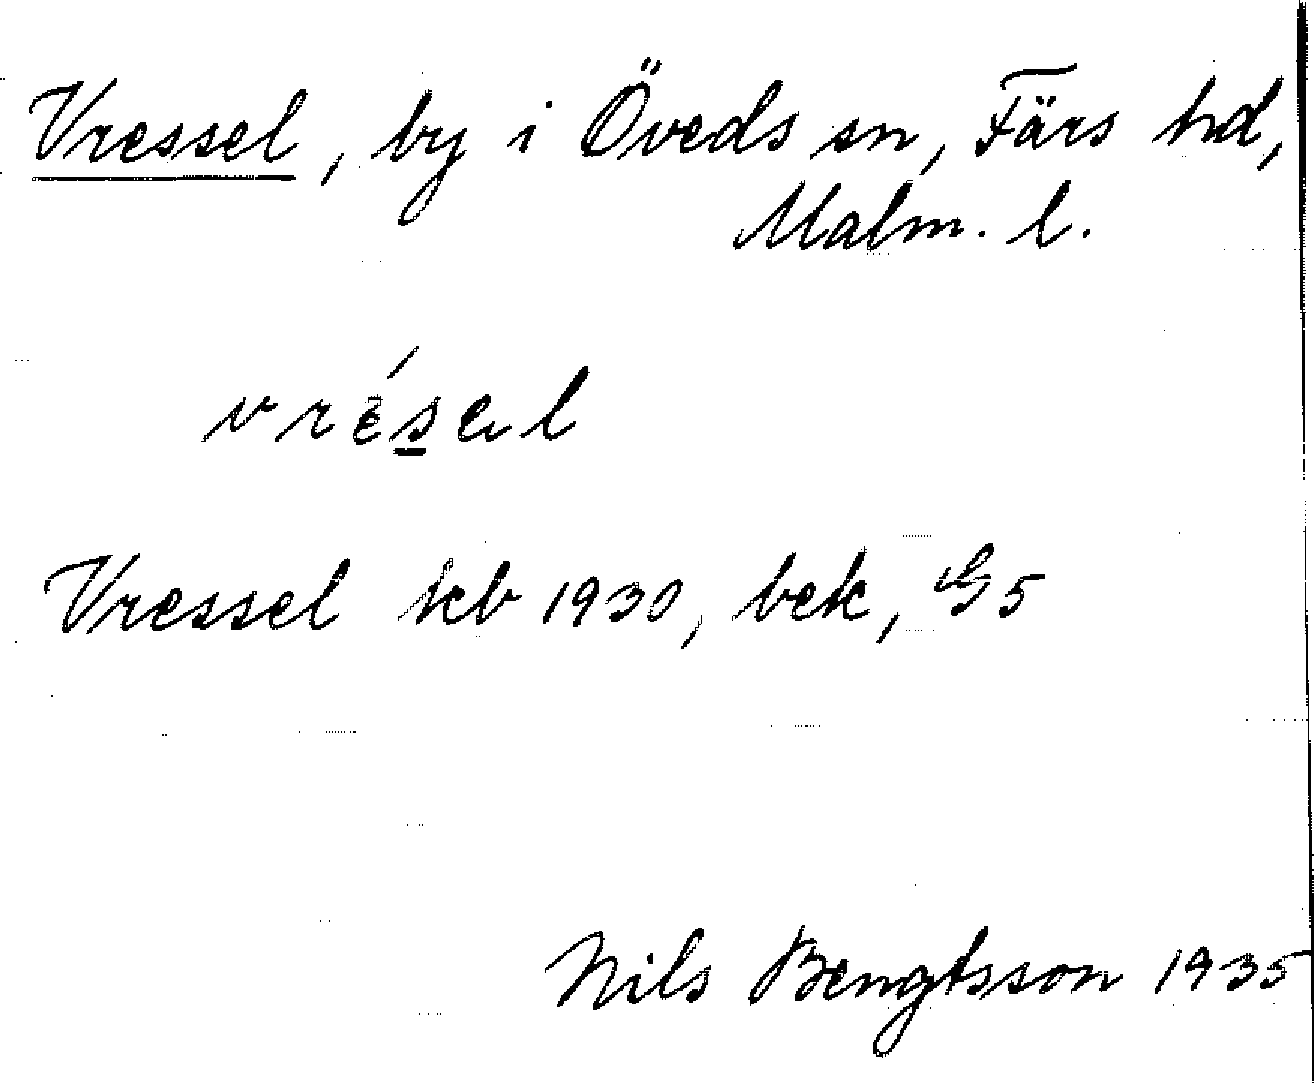 Vressel, by i Öveds sn, Färs hd,
Malm. l.
vrésel
Vressel kb 1930, bek, G5
Nils Bengtsson 1935